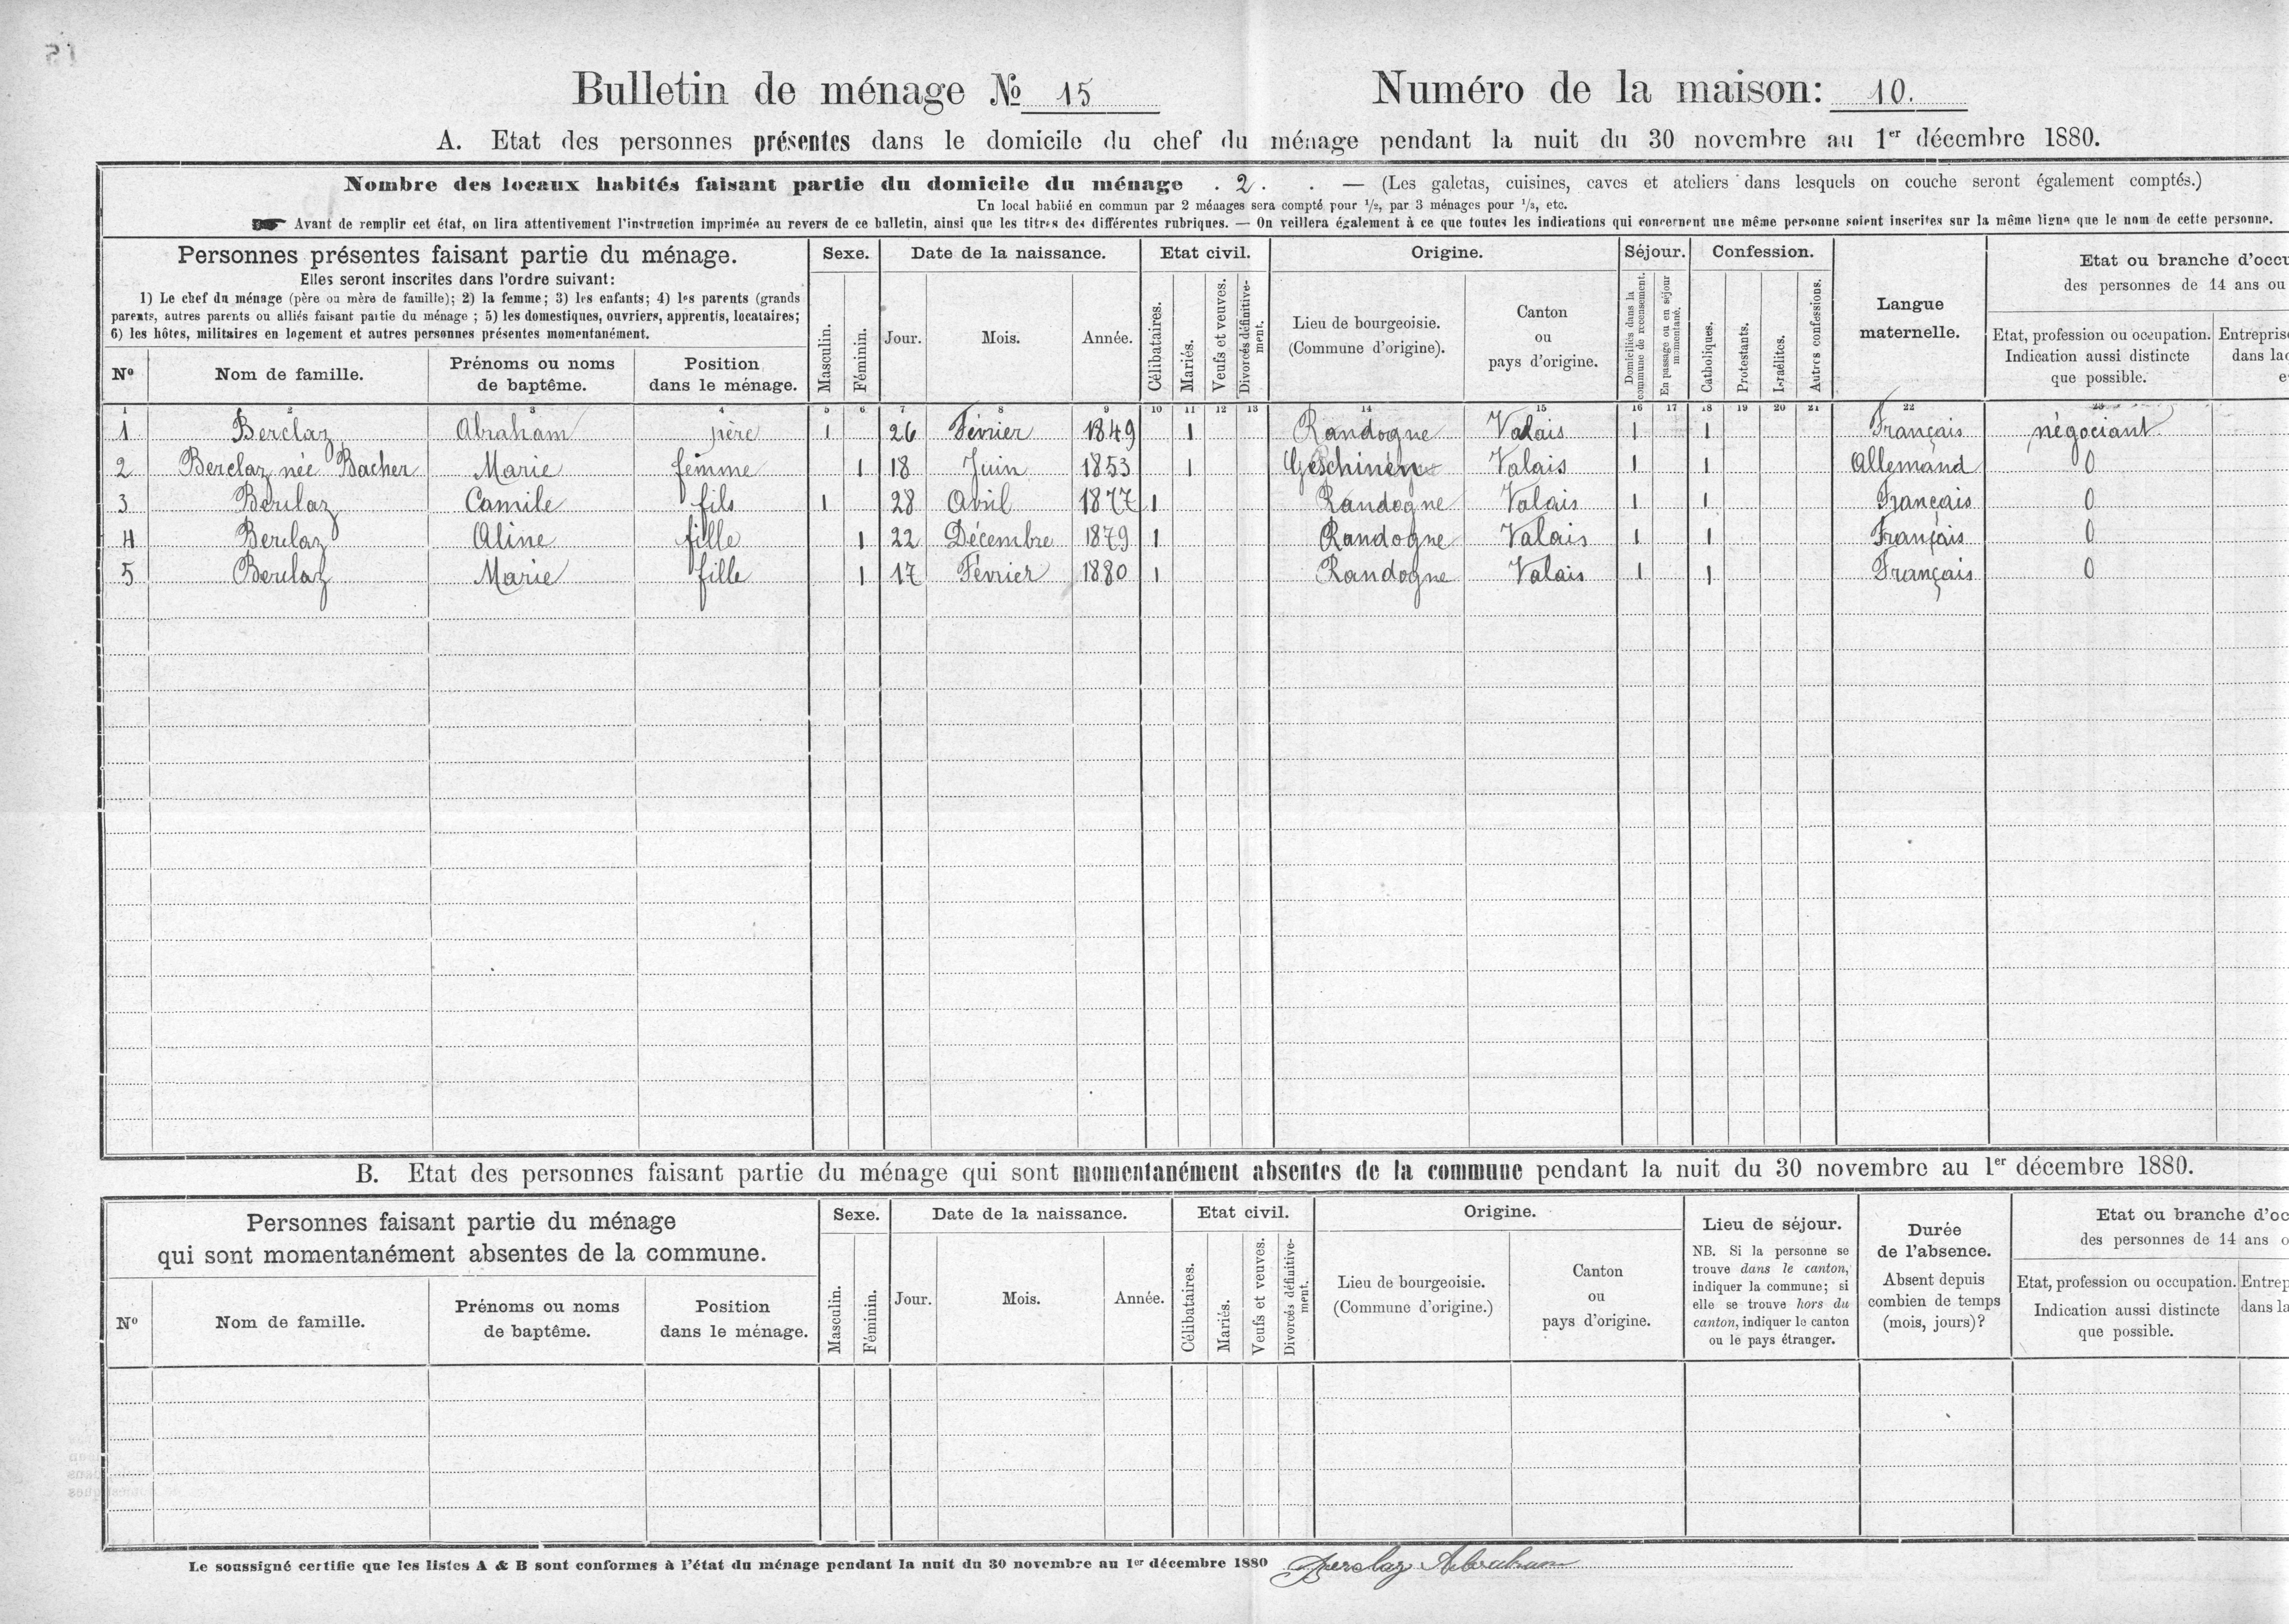 Bulletin de ménage No 15 Numéro de la maison: 10.
A. Etat des personnes présentes dans le domicile du chef du ménage pendant la nuit du 30 novembre au 1er décembre 1880.
Nombre des locaux habités faisant partie du domicile du ménage . 2 . . — (Les galetas, cuisines, caves et ateliers dans lesquels on couche seront également comptés.)
Un local habité en commun par 2 ménages sera compté pour 1/2, par 3 ménages pour 1/3, etc.
Avant de remplir cet état, on lira attentivement l'instruction imprimée au revers de ce bulletin, ainsi que les titres des différentes rubriques. — On veillera également à ce que toutes les indications qui concernent une même personne soient inscrites sur la même ligne que le nom de cette personne.
Personnes présentes faisant partie du ménage.
Elles seront inscrites dans l'ordre suivant:
1) Le chef du ménage (père ou mère de famille); 2) la femme; 3) les enfants; 4) les parents (grands
parents, autres parents ou alliés faisant partie du ménage ; 5) les domestiques, ouvriers, apprentis, locataires;
6) les hôtes, militaires en logement et autres personnes présentes momentanément.
No
Nom de famille.
Prénoms ou noms
de baptême.
Position
dans le ménage.
Sexe.
Masculin.
Féminin.
Date de la naissance.
Jour.
Mois.
Année.
Etat civil.
Célibataires.
Mariés.
Veufs et veuves.
Divorcés définitive-
ment.
Origine.
Lieu de bourgeoisie.
(Commune d'origine).
Canton
ou
pays d'origine.
Séjour.
Domiciliés dans la
commune de recensement.
En passage ou en séjour
momentané.
Confession.
Catholiques.
Protestants.
Israélites.
Autres confessions.
Langue
maternelle.
Etat ou branche d'occu
des personnes de 14 ans ou
Etat, profession ou occupation.
Indication aussi distincte
que possible.
Entreprise
dans la
e
1 2 3 4 5 6 7 8 9 10 11 12 13 14 15 16 17 18 19 20 21 22 23
1 Berclaz Abraham père 1 26 Février 1849 1 Randogne Valais 1 1 Français négociant
2 Berclaz née Bacher Marie femme 1 18 Juin 1853 1 Geschinen Valais 1 1 Allemand 0
3 Berclaz Camile fils 1 28 Avril 1877 1 Randogne Valais 1 1 Français 0
4 Berclaz Aline fille 1 22 Décembre 1879 1 Randogne Valais 1 1 Français 0
5 Berclaz Marie fille 1 17 Février 1880 1 Randogne Valais 1 1 Français 0
B. Etat des personnes faisant partie du ménage qui sont momentanément absentes de la commune pendant la nuit du 30 novembre au 1er décembre 1880.
Personnes faisant partie du ménage
qui sont momentanément absentes de la commune.
No
Nom de famille.
Prénoms ou noms
de baptême.
Position
dans le ménage.
Sexe.
Masculin.
Féminin.
Date de la naissance.
Jour.
Mois.
Année.
Etat civil.
Célibataires.
Mariés.
Veufs et veuves.
Divorcés définitive-
ment.
Origine.
Lieu de bourgeoisie.
(Commune d'origine.)
Canton
ou
pays d'origine.
Lieu de séjour.
NB. Si la personne se
trouve dans le canton,
indiquer la commune; si
elle se trouve hors du
canton, indiquer le canton
ou le pays étranger.
Durée
de l'absence.
Absent depuis
combien de temps
(mois, jours)?
Etat ou branche d'oc
des personnes de 14 ans o
Etat, profession ou occupation.
Indication aussi distincte
que possible.
Entrep
dans la
Le soussigné certifie que les listes A & B sont conformes à l'état du ménage pendant la nuit du 30 novembre au 1er décembre 1880 Berclaz Abraham